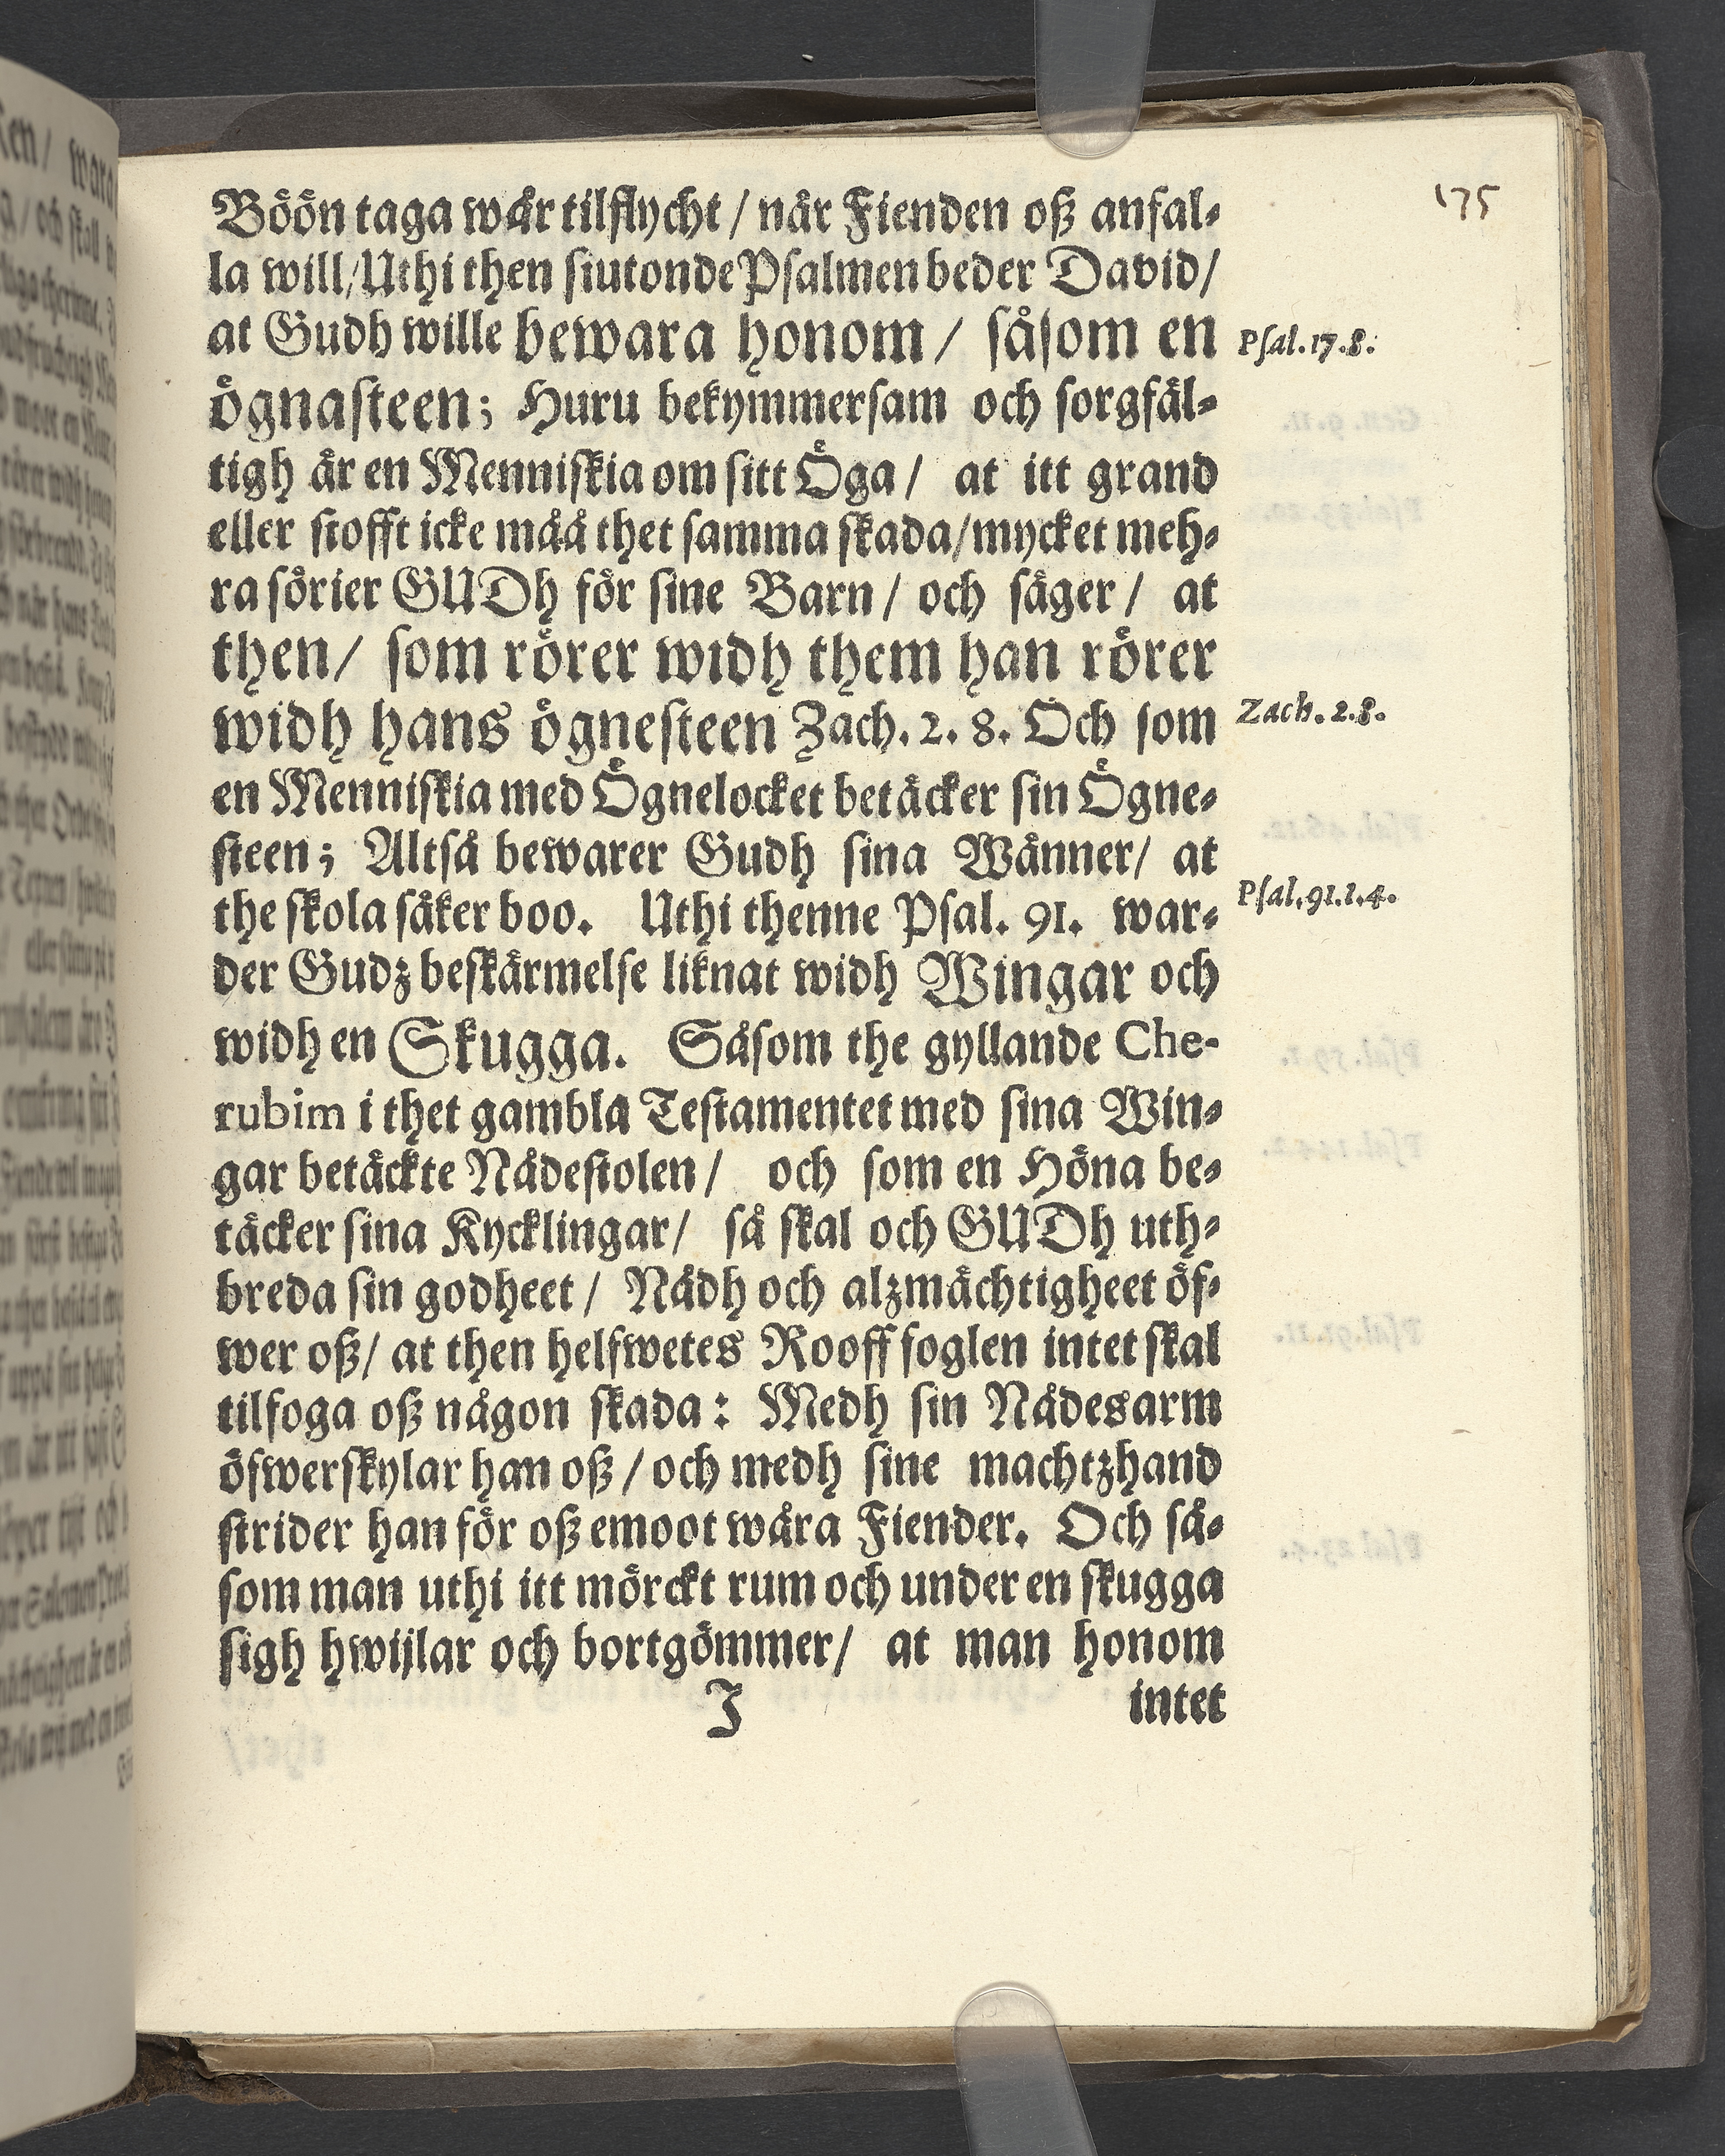 175
Böön taga wår tilflycht / når Fienden oß anfal-
la will/Uthi then siutonde Psalmen beder David/
at Gudh wille bewara honom / såsom en
ögnasteen; Huru bekymmersam och sorgfäl-
tigh är en Menniskia om sitt Öga / at itt grand
eller stofft icke måå thet samma skada/mycket meh-
ra sörier GUDh för sine Barn / och säger / at
then/ som rörer widh them han rörer
widh hans ögnesteen Zach. 2. 8. Och som
en Menniskia med Ögnelocket betäcker sin Ögne-
steen; Altså bewarer Gudh sina Wänner/ at
the skola säker boo. Uthi thenne Psal. 91. war-
der Gudz beskärmelse liknat widh Wingar och
widh en Skugga. Såsom the gyllande Che-
rubim i thet gambla Testamentet med sina Win-
gar betäckte Nådestolen / och som en Höna be-
täcker sina Kycklingar/ så skal och GUDh uth-
breda sin godheet / Nådh och alzmächtigheet öf-
wer oß/ at then helfwetes Rooff foglen intet skal
tilfoga oß någon skada: Medh sin Nådesarm
öfwerskylar han oß / och medh sine machtzhand
strider han för oß emoot wåra Fiender. Och så-
som man uthi itt mörckt rum och under en skugga
sigh hwijlar och bortgömmer/ at man honom
J intet
Psal. 17. 8.
Zach. 2. 8.
Psal. 91. 1. 4.